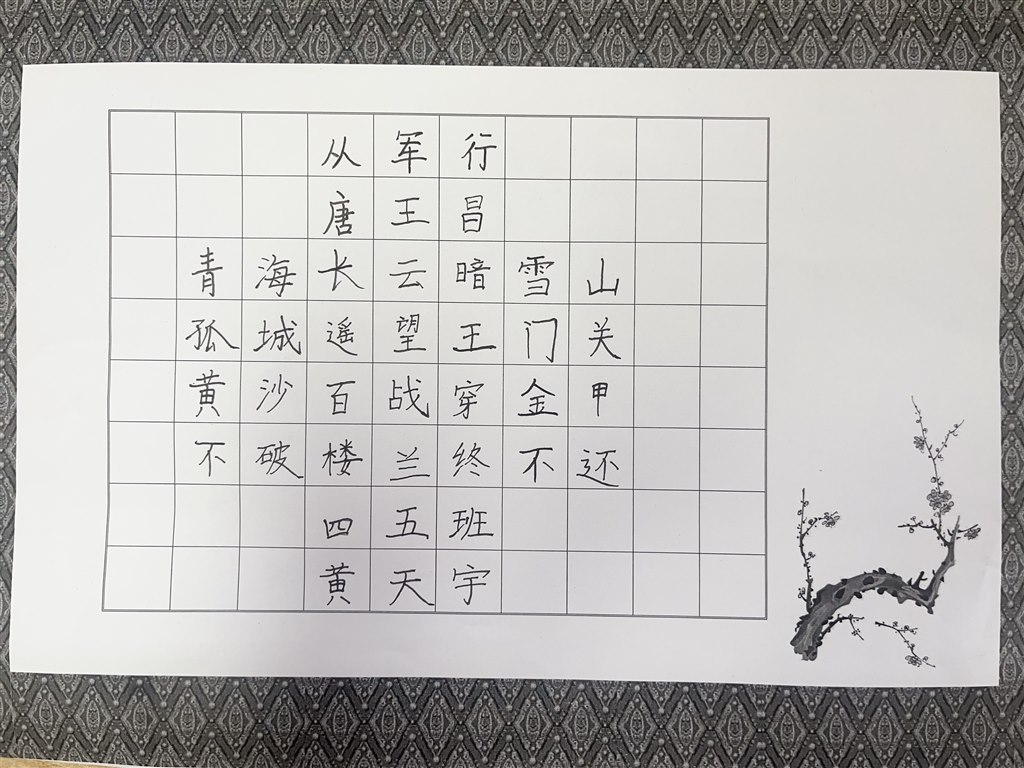 从军行
唐王昌
青海长云暗雪山
孤城遥望王门关
黄沙百战穿金甲
不破楼兰终不还
四五班
黄天宇